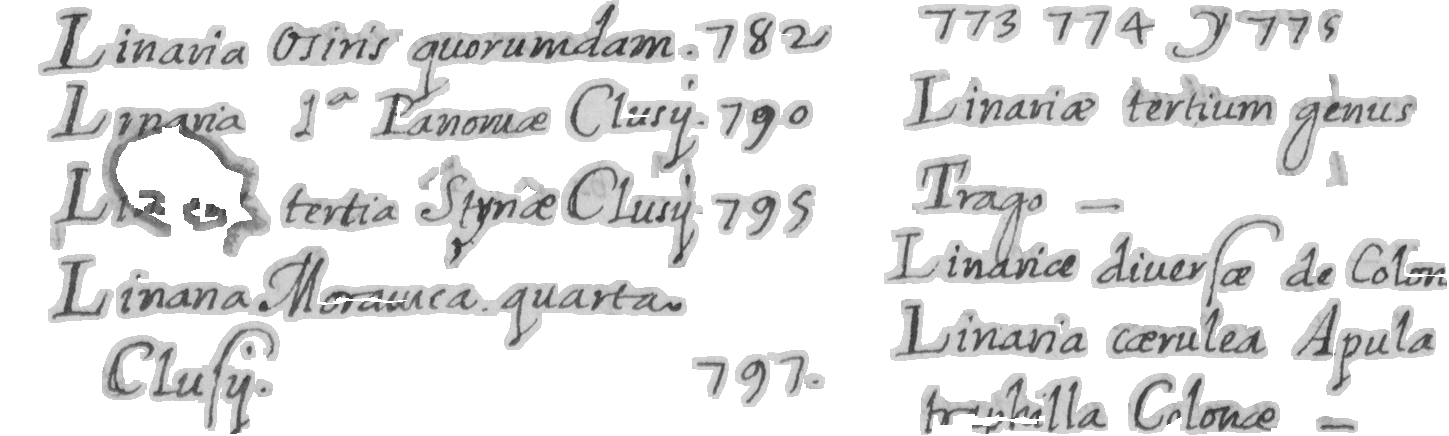 Linaria Osiris quorumdam. 782
Linaria 1ª Panoniæ Clusij. 790
tertia Styriæ Clusij 795
Linaria Morauica quarta.
Clusij. 797.
773 774 y 775
Linariæ tertium genus
Trago —
Linariæ diuersæ de Colon
Linaria cærulea Apula
Colonæ —